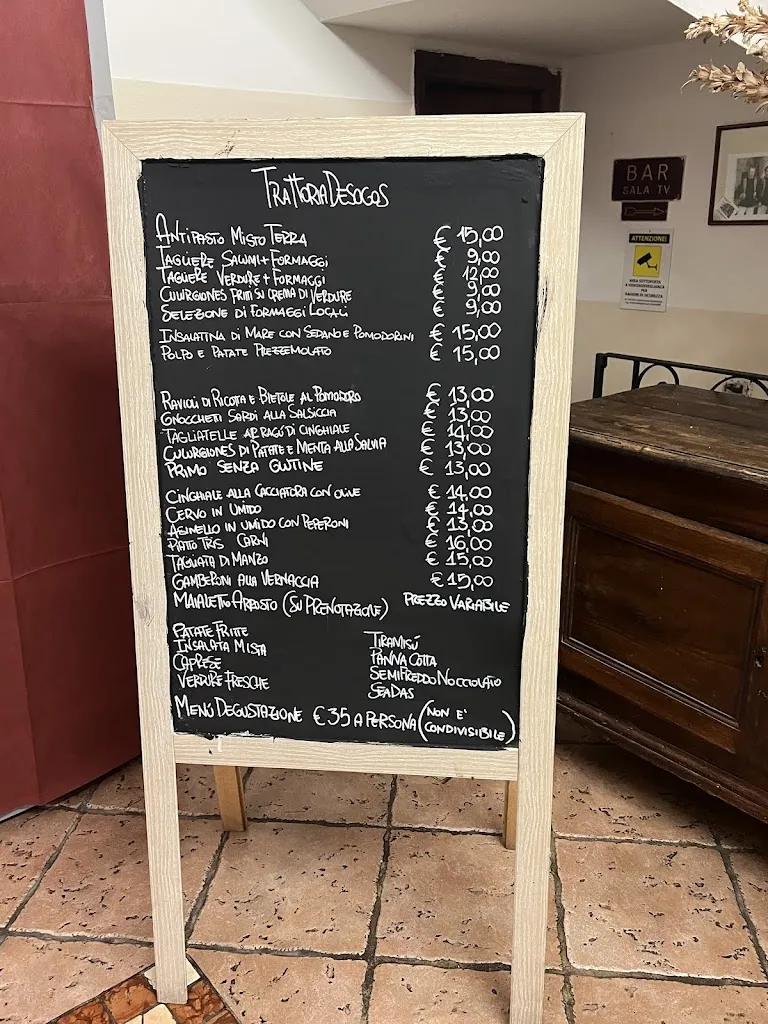 Trattoria Desogos
Antipasto Misto Terra € 15,00
Tagliere Salumi + Formaggi € 9,00
Tagliere Verdure + Formaggi € 12,00
Culurgiones Fritti su crema di Verdure € 9,00
Selezione di Formaggi Locali € 9,00
Insalatina di Mare con Sedano e Pomodorini € 15,00
Polpo e Patate Prezzemolato € 15,00
Ravioli di Ricotta e Bietole al Pomodoro € 13,00
Gnocchetti Sardi alla Salsiccia € 13,00
Tagliatelle al Ragù di Cinghiale € 14,00
Culurgiones di Patate e Menta alla Salvia € 13,00
Primo Senza Glutine € 13,00
Cinghiale alla Cacciatora con olive € 14,00
Cervo in Umido € 14,00
Agnello in umido con Peperoni € 13,00
Piatto Tris Carni € 16,00
Tagliata di Manzo € 15,00
Gamberoni alla Vernaccia € 15,00
Maialetto Arrosto (Su Prenotazione) Prezzo Variabile
Patate Fritte
Insalata Mista
Caprese
Verdure Fresche
Tiramisù
Panna Cotta
Semifreddo Nocciolato
Seadas
Menù Degustazione € 35 a Persona (non è condivisibile)
BAR
SALA TV
ATTENZIONE!
AREA SOTTOPOSTA
A VIDEOSORVEGLIANZA
PER
RAGIONI DI SICUREZZA